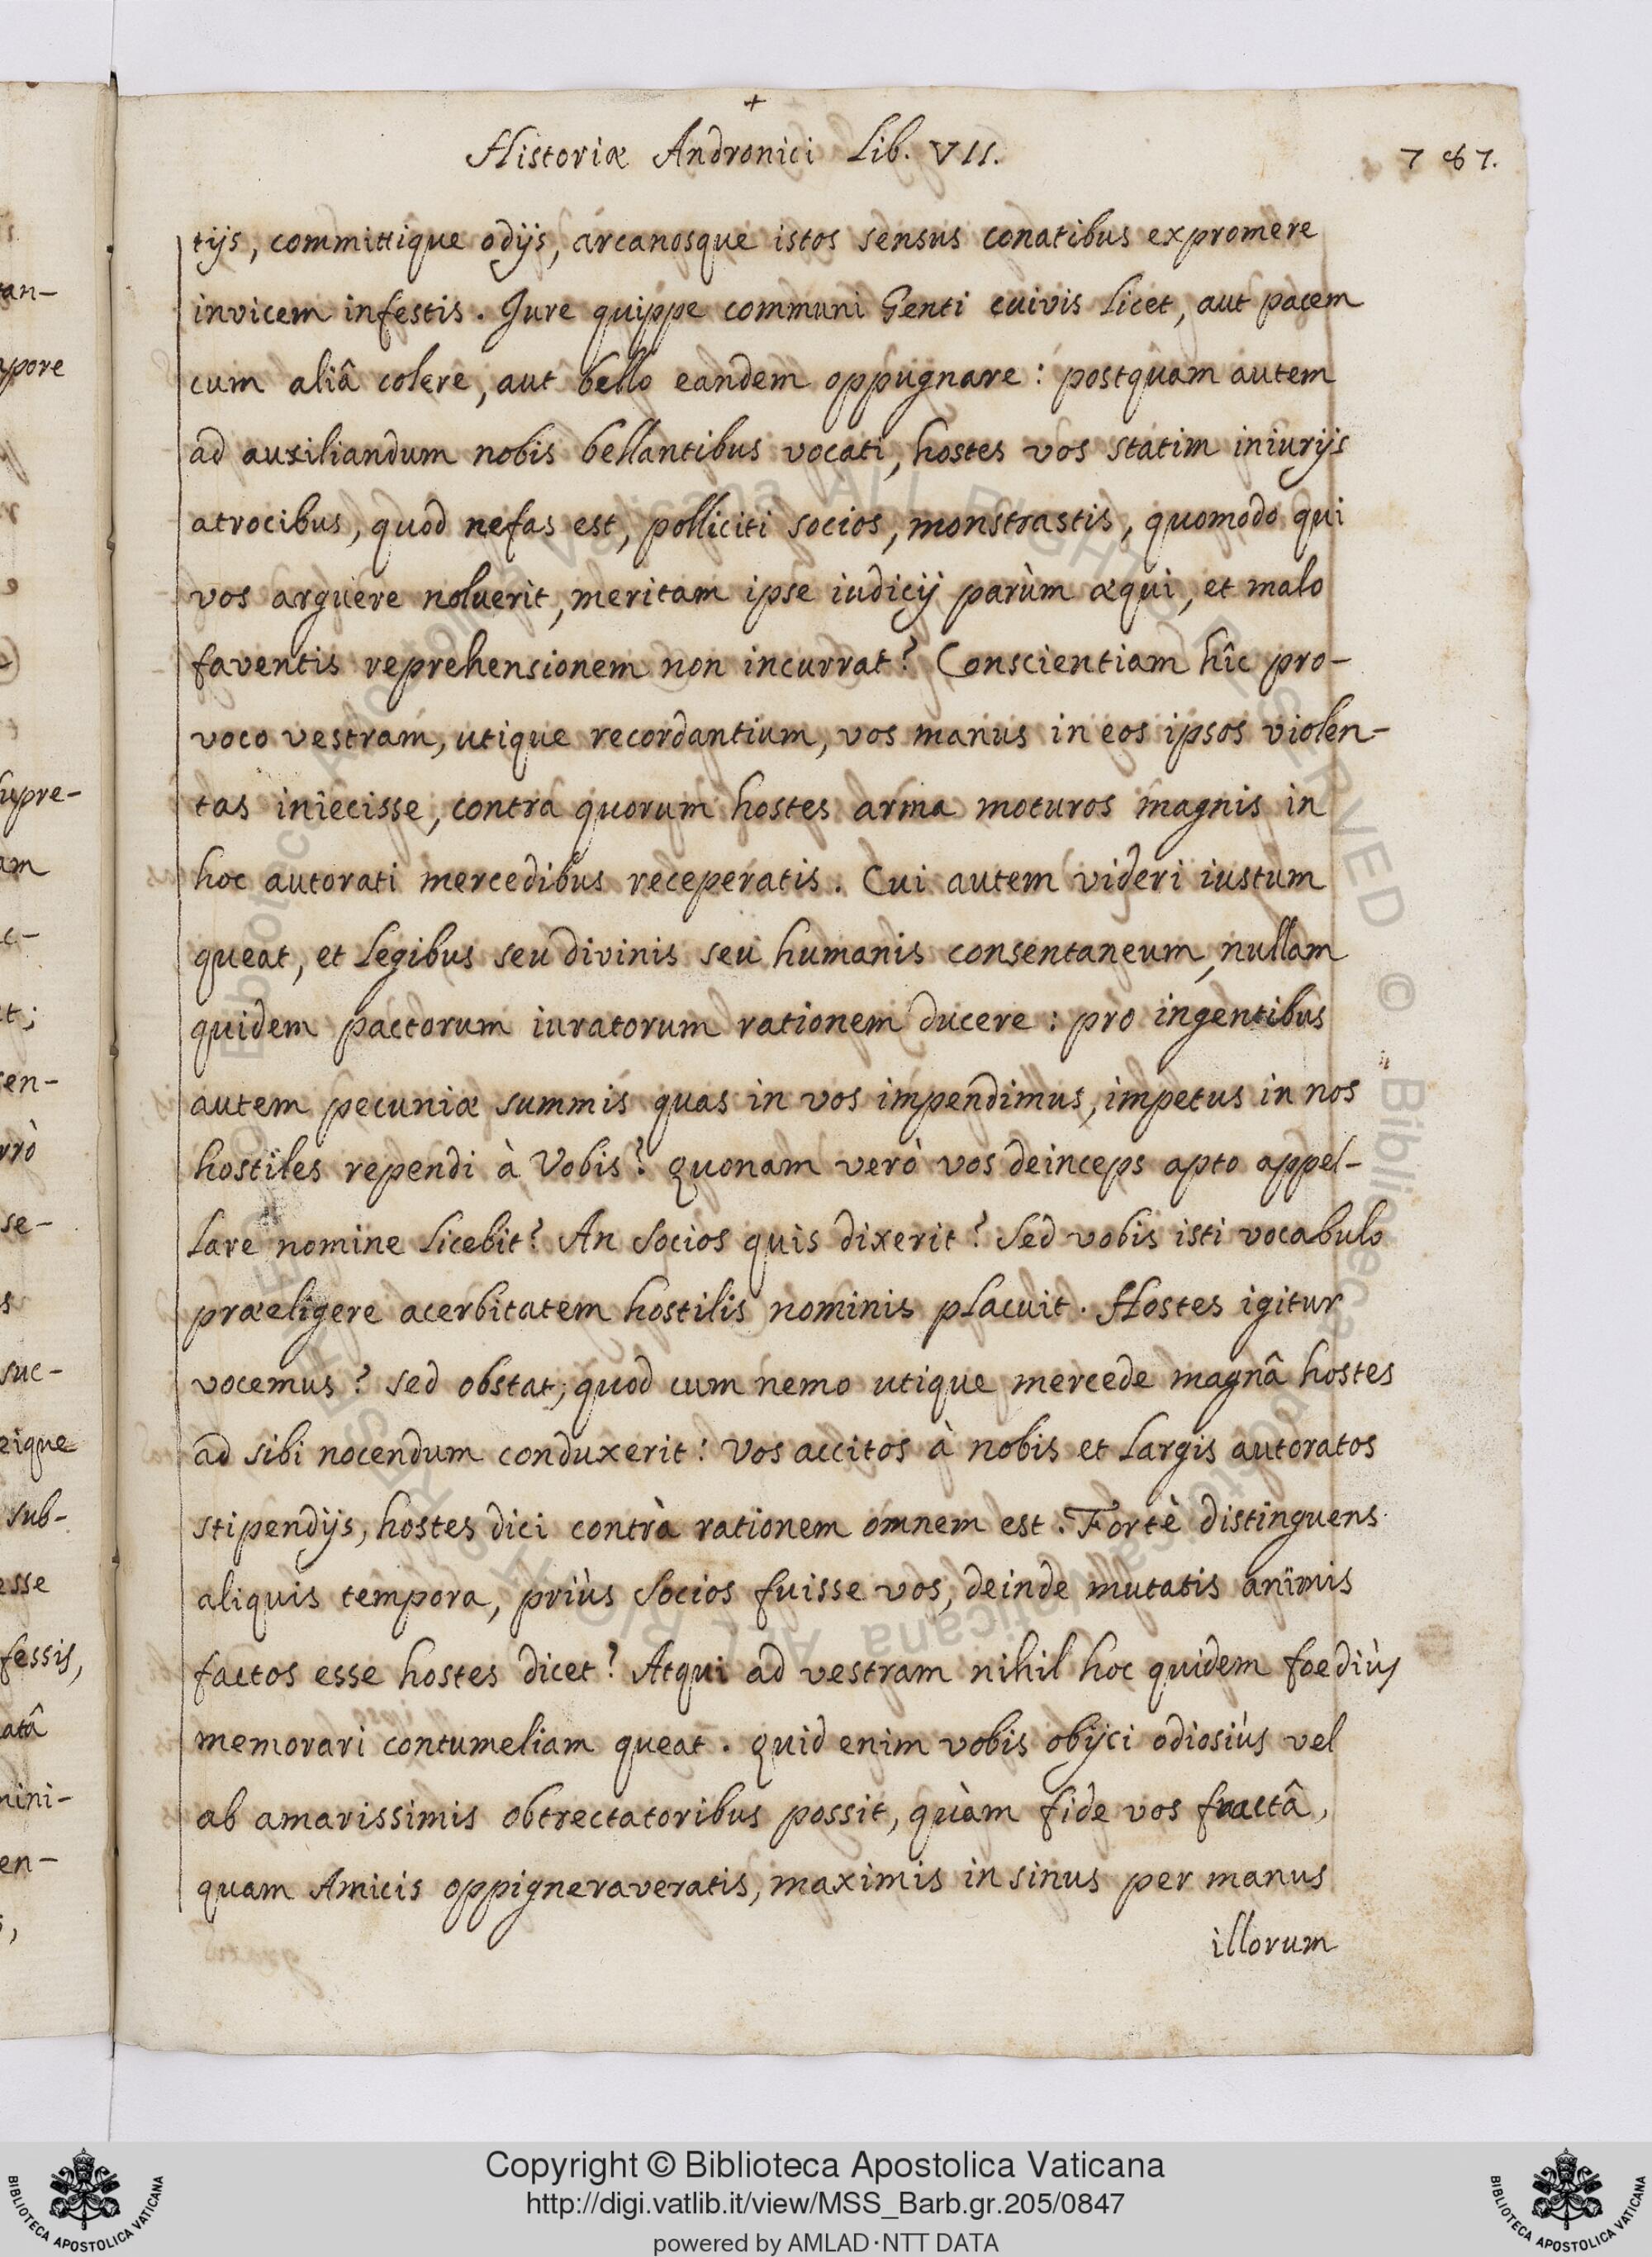 Historiæ Andronici Lib. VII.
787.
tijs, committique odijs, arcanosque istos sensus conatibus expromere
invicem infestis. Jure quippe communi Genti cuivis licet, aut pacem
cum aliâ colere, aut bello eandem oppugnare: postquam autem
ad auxiliandum nobis bellantibus vocati, hostes vos statim iniurijs
atrocibus, quod nefas est, polliciti socios, monstrastis, quomodo qui
vos arguere noluerit, meritam ipse iudicij parùm æqui, et malo
faventis reprehensionem non incurrat? Conscientiam hîc pro-
voco vestram, utique recordantium, vos manus in eos ipsos violen-
tas iniecisse, contra quorum hostes arma moturos magnis in
hoc autorati mercedibus receperatis. Cui autem videri iustum
queat, et legibus seu divinis seu humanis consentaneum, nullam
quidem pactorum iuratorum rationem ducere: pro ingentibus
autem pecuniæ summis quas in vos impendimus, impetus in nos
hostiles rependi à Vobis? Quonam verò vos deinceps apto appel-
lare nomine licebit? An Socios quis dixerit? Sed vobis isti vocabulo
præeligere acerbitatem hostilis nominis placuit. Hostes igitur
vocemus? Sed obstat, quod cum nemo utique mercede magnâ hostes
ad sibi nocendum conduxerit: Vos accitos à nobis et largis autoratos
stipendijs, hostes dici contrà rationem omnem est. Fortè distinguens
aliquis tempora, priùs Socios fuisse vos, deinde mutatis animis
factos esse hostes dicet? Atqui ad vestram nihil hoc quidem foediùs
memorari contumeliam queat. Quid enim vobis obijci odiosiùs vel
ab amarissimis obtrectatoribus possit, quàm fide vos fractâ,
quam Amicis oppigneraveratis, maximis in sinus per manus
illorum
an-
pore
upre-
am
c-
t;
sen-
rrò
se-
s
suc-
eique
sub-
esse
fessis,
atâ
mini-
en-
Copyright © Biblioteca Apostolica Vaticana
http://digi.vatlib.it/view/MSS_Barb.gr.205/0847
powered by AMLAD·NTT DATA
BIBLIOTECA APOSTOLICA VATICANA
BIBLIOTECA APOSTOLICA VATICANA